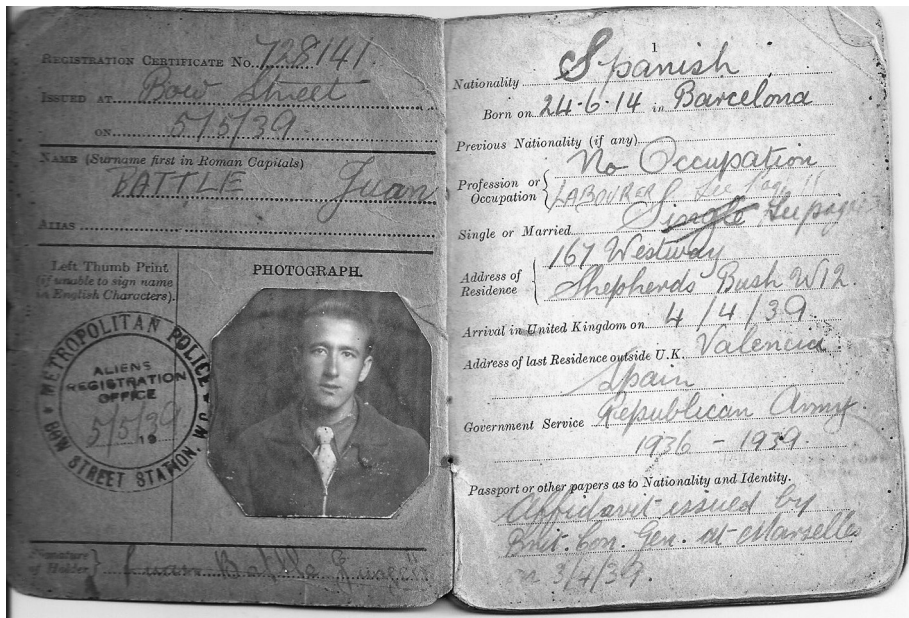 REGISTRATION CERTIFICATE No. 728141.
ISSUED AT Bow Street
ON 5/5/39.
NAME (Surname first in Roman Capitals)
BATTLE Juan
ALIAS
Left Thumb Print
(if unable to sign name
in English Characters).
PHOTOGRAPH.
METROPOLITAN POLICE
ALIENS
REGISTRATION
OFFICE
5/5/39
19
BOW STREET STATION, W.C.
Signature
of Holder
Juan Battle
1
Nationality Spanish
Born on 24-6-14 in Barcelona
Previous Nationality (if any)
No Occupation
Profession or
Occupation
LABOURER See Page 11
Single or Married Single See page
Address of
Residence
167 Westway
Shepherds Bush W12.
Arrival in United Kingdom on 4/4/39.
Address of last Residence outside U.K. Valencia
Spain
Government Service Republican Army
1936 - 1939.
Passport or other papers as to Nationality and Identity.
Affidavit issued by
Brit. Con. Gen. at Marseilles
on 3/4/39.